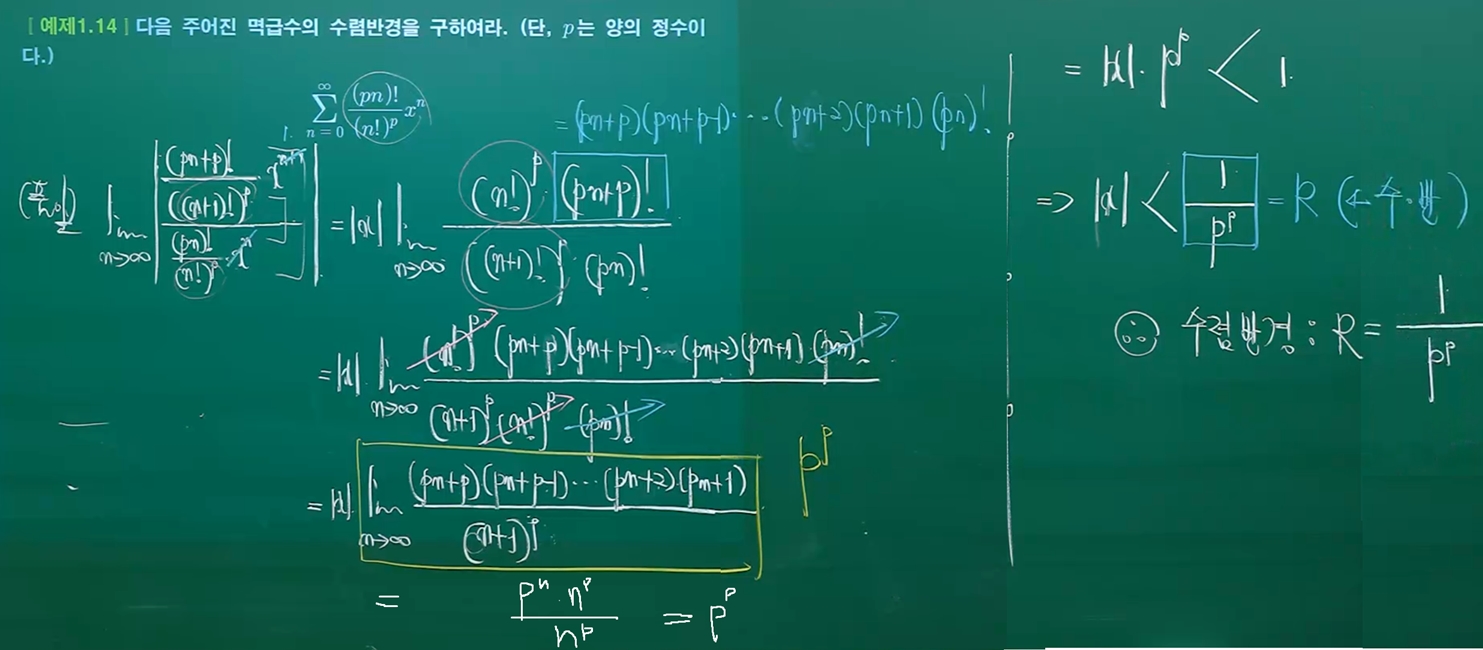 [ 예제1.14 ] 다음 주어진 멱급수의 수렴반경을 구하여라. (단, p는 양의 정수이
다.)
\sum_{n=0}^{\infty} \frac{(pn)!}{(n!)^p} x^n
= (pn+p)(pn+p-1)⋯(pn+2)(pn+1)(pn)!
(풀이) \lim_{n→∞} \left| \frac{\frac{(pn+p)!}{((n+1)!)^p} · x^{n+1}}{\frac{(pn)!}{(n!)^p} · x^n} \right| = |x| \lim_{n→∞} \frac{(n!)^p (pn+p)!}{((n+1)!)^p · (pn)!}
= |x| · \lim_{n→∞} \frac{(n!)^p (pn+p)(pn+p-1)⋯(pn+2)(pn+1)·(pn)!}{(n+1)^p (n!)^p · (pn)!}
= |x| · \lim_{n→∞} \frac{(pn+p)(pn+p-1)⋯(pn+2)·(pn+1)}{(n+1)^p}
p^p
= \frac{p^n · n^p}{n^p} = p^p
= |x| · p^p < 1.
=> |x| < \frac{1}{p^p} = R (← 수·반)
∴ 수렴반경 : R = \frac{1}{p^p}